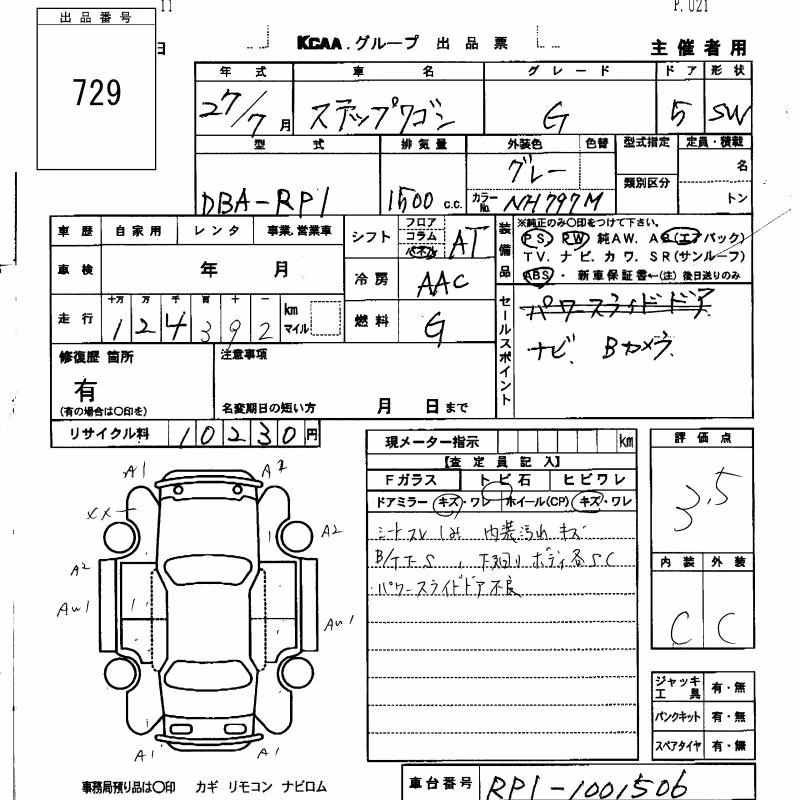 11
P. 021
出品番号
729
日
KCAA.グループ 出品票
主催者用
年式 車名 グレード ドア 形状
27/7月 ステップワゴン G 5 SW
型式 排気量 外装色 色替 型式指定 定員・積載
グレー 名
類別区分
DBA-RP1 1500 c.c. カラーNo. NH797M トン
車歴 自家用 レンタ 事業.営業車
シフト フロア コラム パネル AT
装備品 ※純正のみ〇印をつけて下さい。
PS. PW 純AW. AB(エアバック)
TV. ナビ. カワ. SR(サンルーフ)
ABS ・ 新車保証書←(注) 後日送りのみ
車検 年 月
冷房 AAC
走行 十万 万 千 百 十 一 km マイル
124392
燃料 G
セールスポイント パワースライドドア
ナビ. Bカメラ.
修復歴 箇所
有
(有の場合は〇印を)
注意事項
名変期日の短い方 月 日まで
リサイクル料 10230円
現メーター指示 km
【査定員記入】
Fガラス トビ石 ヒビワレ
ドアミラー キズ・ワレ ホイール(CP) キズ・ワレ
シートスレ シミ 内装汚れ キズ
下回り ボディ各SC
・パワースライドドア不良
評価点
3.5
内装 外装
C C
A1 A2
XX
A2
A2
AW1
AW1
A1 A1
ジャッキ工具 有・無
パンクキット 有・無
スペアタイヤ 有・無
事務局預り品は〇印 カギ リモコン ナビロム
車台番号 RP1-1001506